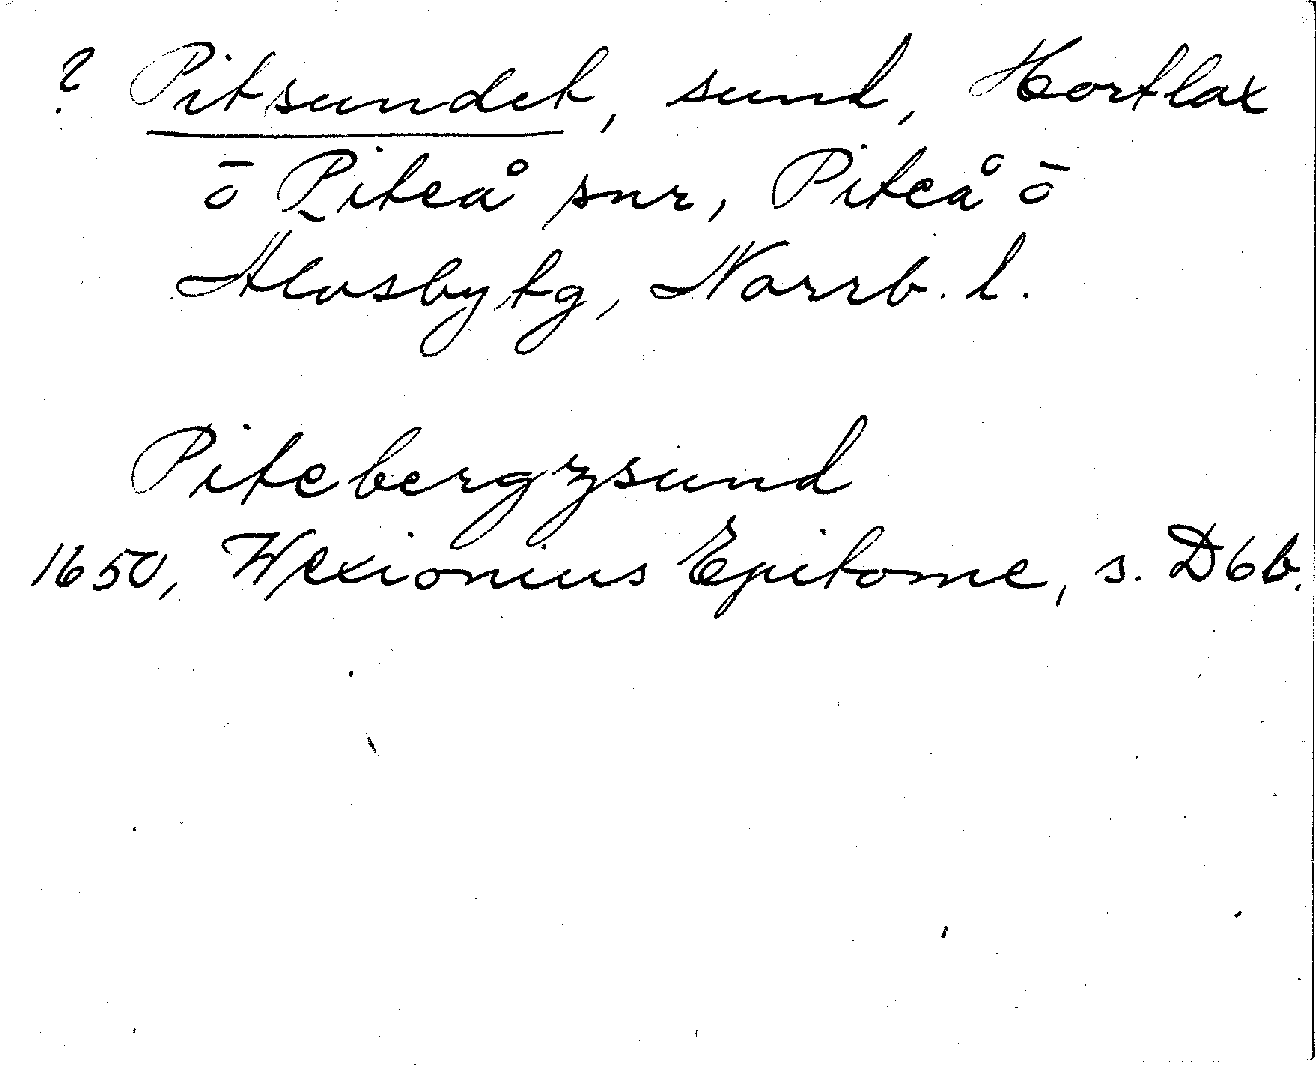 ? Pitsundet, sund, Hortlax
ō Piteå snr, Piteå ō
Älvsbytg, Norrb. l.
Pitebergzsund
1650, Wexionius Epitome, s. D6b.